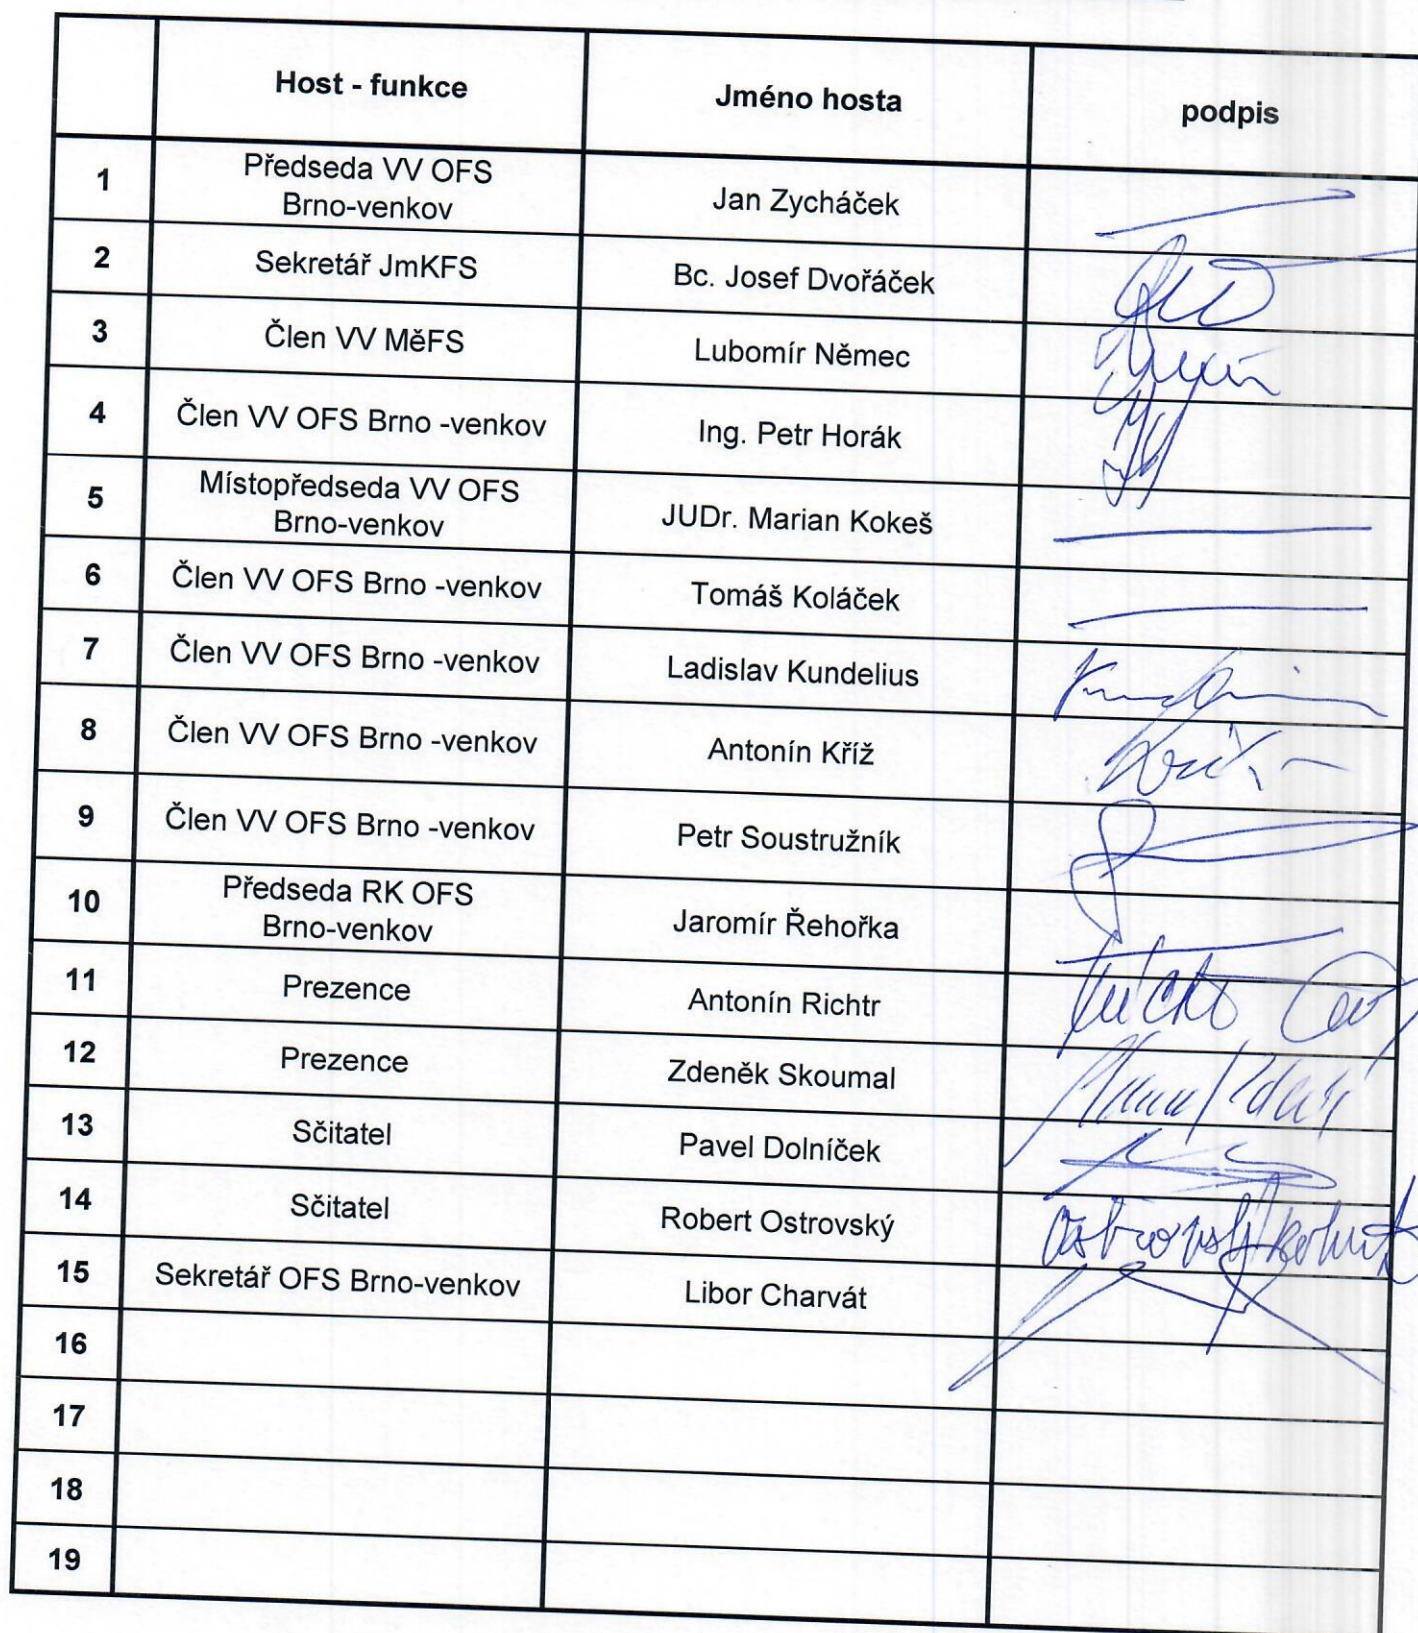 Host - funkce Jméno hosta podpis
1 Předseda VV OFS
Brno-venkov Jan Zycháček
2 Sekretář JmKFS Bc. Josef Dvořáček
3 Člen VV MěFS Lubomír Němec
4 Člen VV OFS Brno -venkov Ing. Petr Horák
5 Místopředseda VV OFS
Brno-venkov JUDr. Marian Kokeš
6 Člen VV OFS Brno -venkov Tomáš Koláček
7 Člen VV OFS Brno -venkov Ladislav Kundelius
8 Člen VV OFS Brno -venkov Antonín Kříž
9 Člen VV OFS Brno -venkov Petr Soustružník
10 Předseda RK OFS
Brno-venkov Jaromír Řehořka
11 Prezence Antonín Richtr
12 Prezence Zdeněk Skoumal
13 Sčitatel Pavel Dolníček
14 Sčitatel Robert Ostrovský Ostrovský Robert
15 Sekretář OFS Brno-venkov Libor Charvát
16
17
18
19